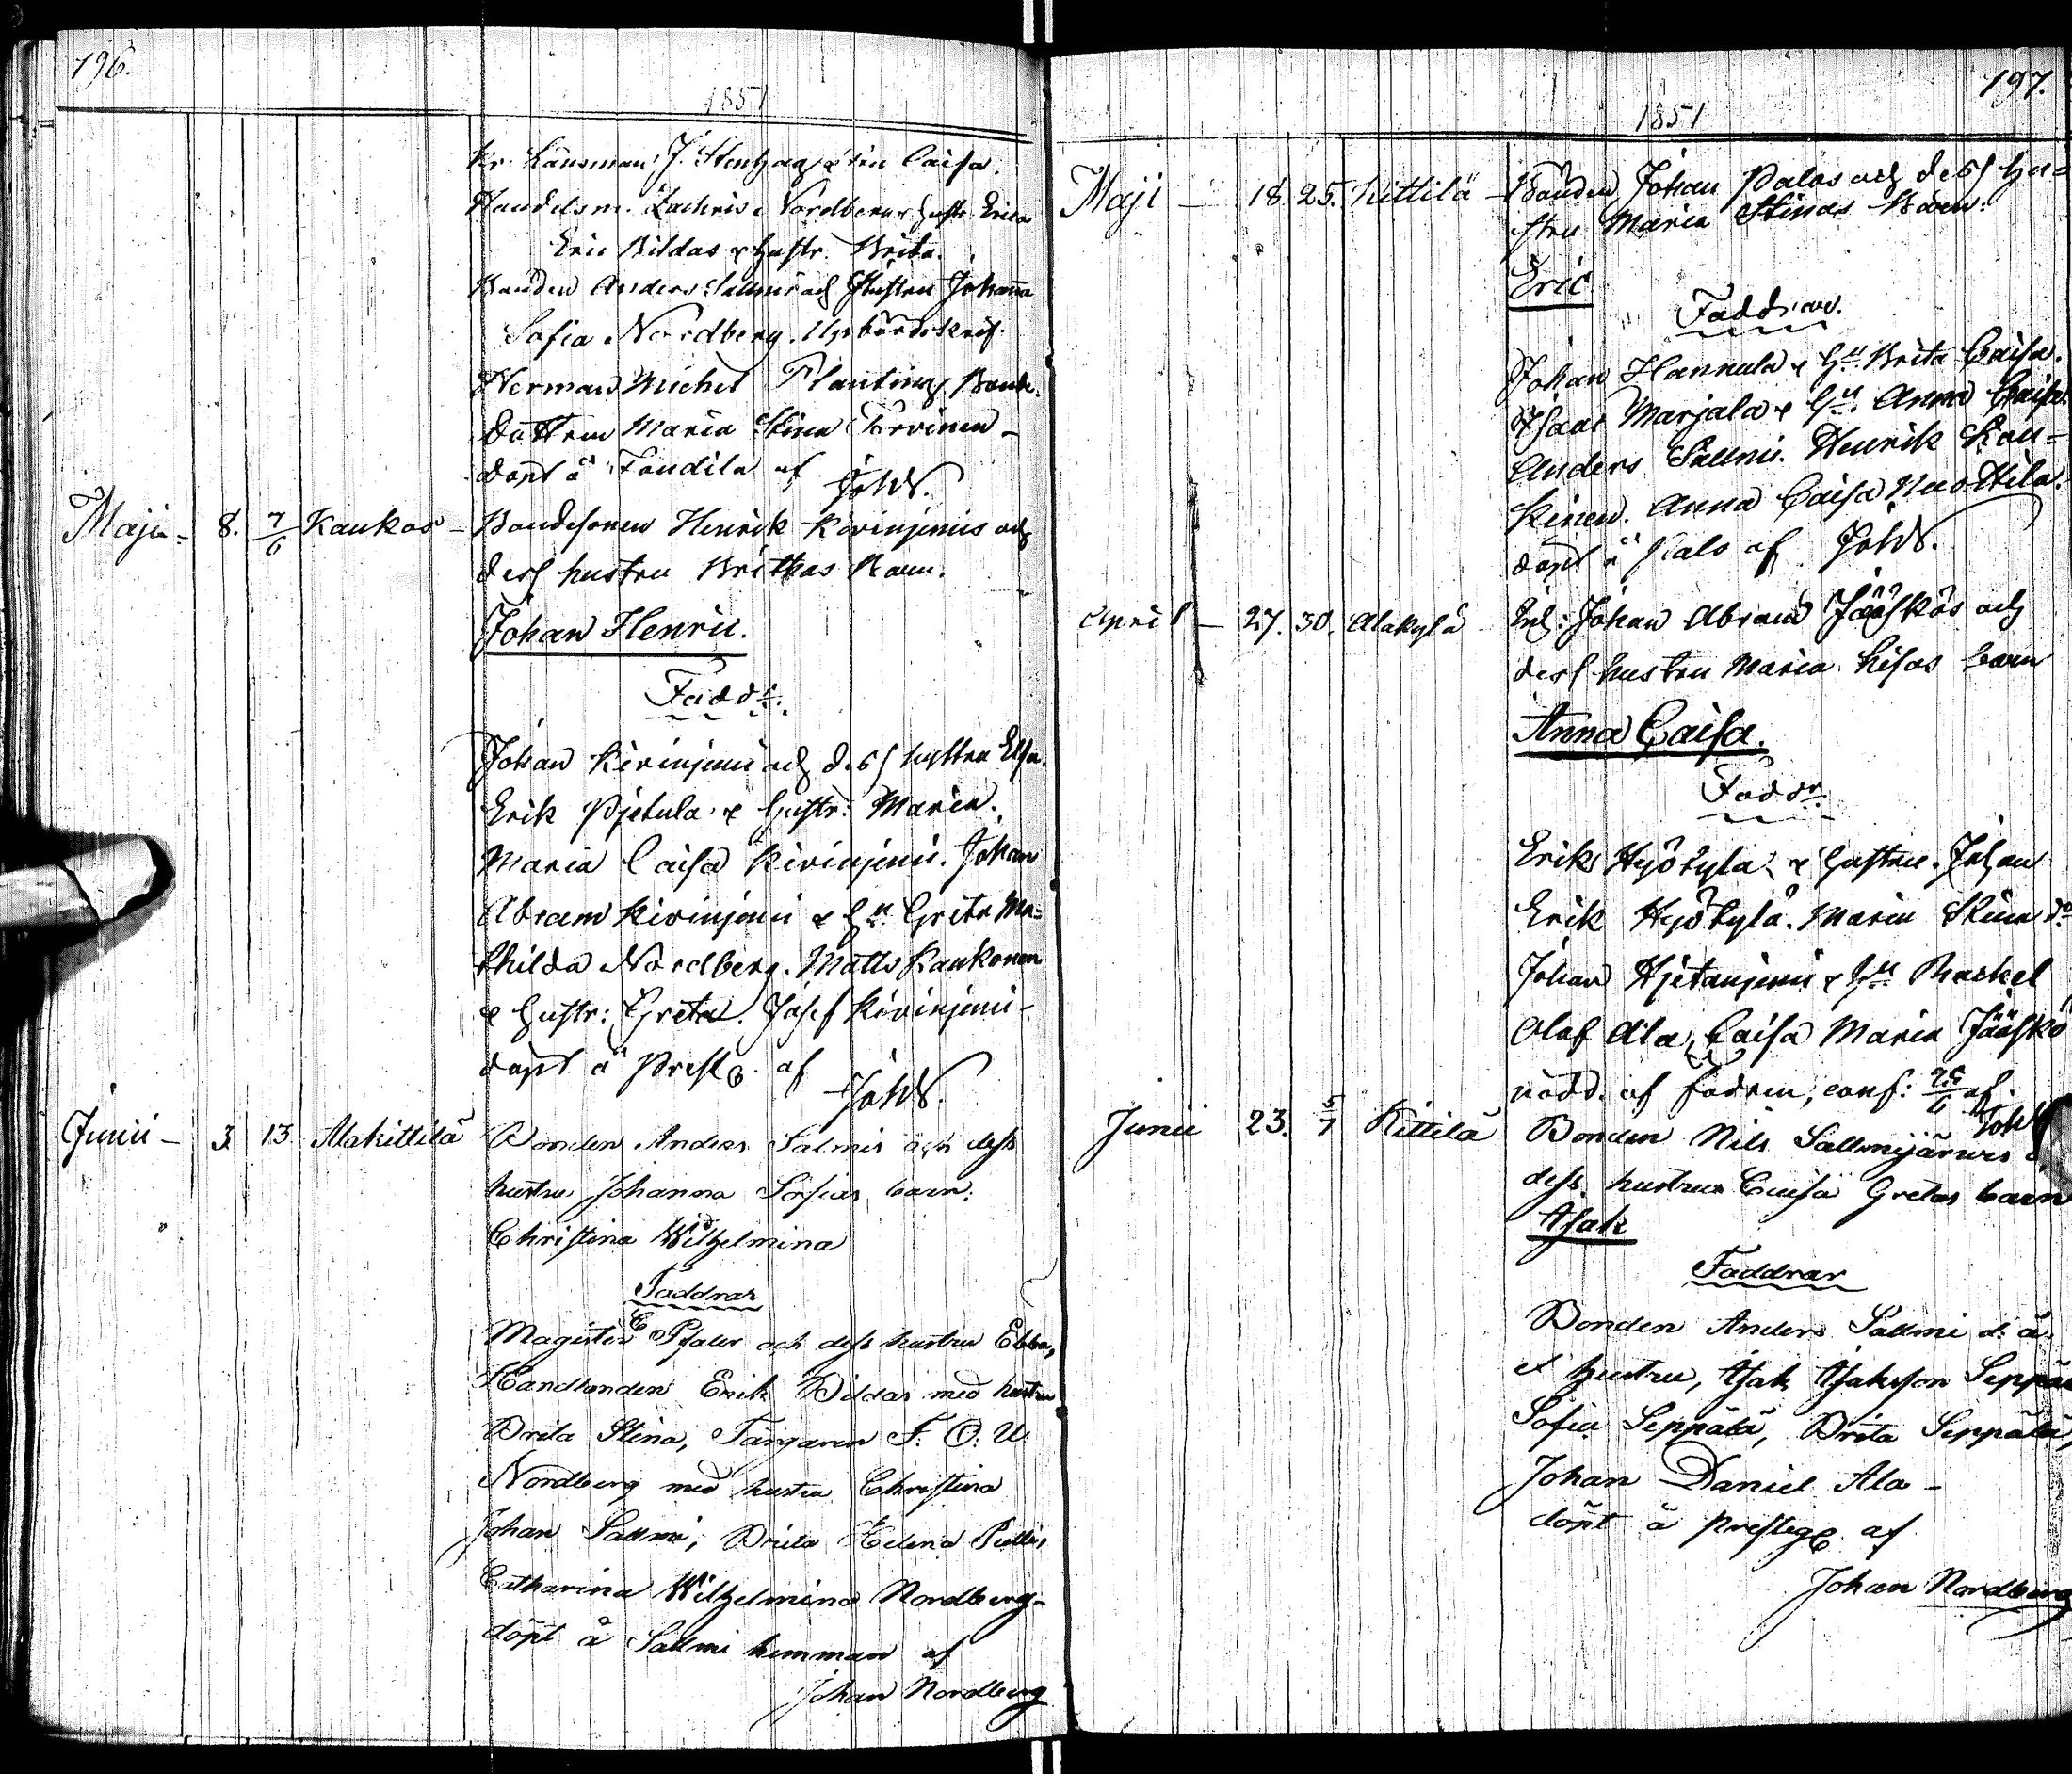 196.
1851
Kr. Länsman J. Stenhag & Fru Caisa.
Handelsm. Zachris Nordberg & hustr. Erica
Eric Bildas & hustr. Brita.
Bonden Anders Sallmi och Hustru Johanna
Sofia Nordberg. Uppbördsskrif.
Herman Michel Planting Bonde-
dottren Maria Stina Torvinen –
döpt å Tondila af
Joh N.
Maji – 8. 7/6 Kaukos – Bondesonen Henrik Kivinjemis och
dess hustru Brittas Barn.
Johan Henric.
Faddr.
Johan Kivinjemi och dess hustru Elsa.
Erik Pjetula & hustr: Maria.
Maria Caisa Kivinjemi. Johan
Abram Kivinjemi & hu Grita Ma=
thilda Nordberg. Matts Kaukonen
& hustr: Greta. Josef Kivinjemi –
döpt å Prestg. af
Joh N.
Junii – 3 13 Alakittilä Bonden Anders Salmis och dess
hustru Johanna Sofias barn:
Christina Wilhelmina
Faddrar
Magister C Pfaler och dess hustru Ebba,
Handlanden Erik Bildas med hustru
Brita Stina, Färgaren F. O. U.
Nordberg med hustru Christina
Johan Sallmi, Brita Helena
Catharina Wilhelmina Nordberg –
döpt å Sallmi hemman af
Johan Nordberg
197.
1851
Maji – 18. 25. Kittilä – Bonden Johan Palos och dess hu=
stru Maria Stinas Barn:
Eric
Faddrar.
Johan Hannula & hu Brita Caisa.
Isaac Marjala & hu. Anna Caisa.
Anders Sallmi. Henrik Kou=
kinen. Anna Caisa Nuottila.
döpt å Palo af Joh N.
April – 27. 30. Alakylä Inh: Johan Abram Jääskös och
dess hustru Maria Lisas barn
Anna Caisa.
Faddr.
Erik Hyötylä & hustru. Johan
Erik Hyötylä. Maria Stina do
Johan Hjetanjemi & hu Rackel
Olof Ala, Caisa Maria Jääskö
nödd. af fadren, conf: 25/6 af
Joh N
Junii 23. 5/7 Kittilä Bonden Nils Sallmijärwis o.
dess hustru Caisa Gretas barn
Isak
Faddrar
Bonden Anders Sallmi d. ä.
& hustru, Isak Isaksson Seppälä
Sofia Seppälä, Brita Seppälä,
Johan Daniel Ala –
döpt å prestg. af
Johan Nordberg